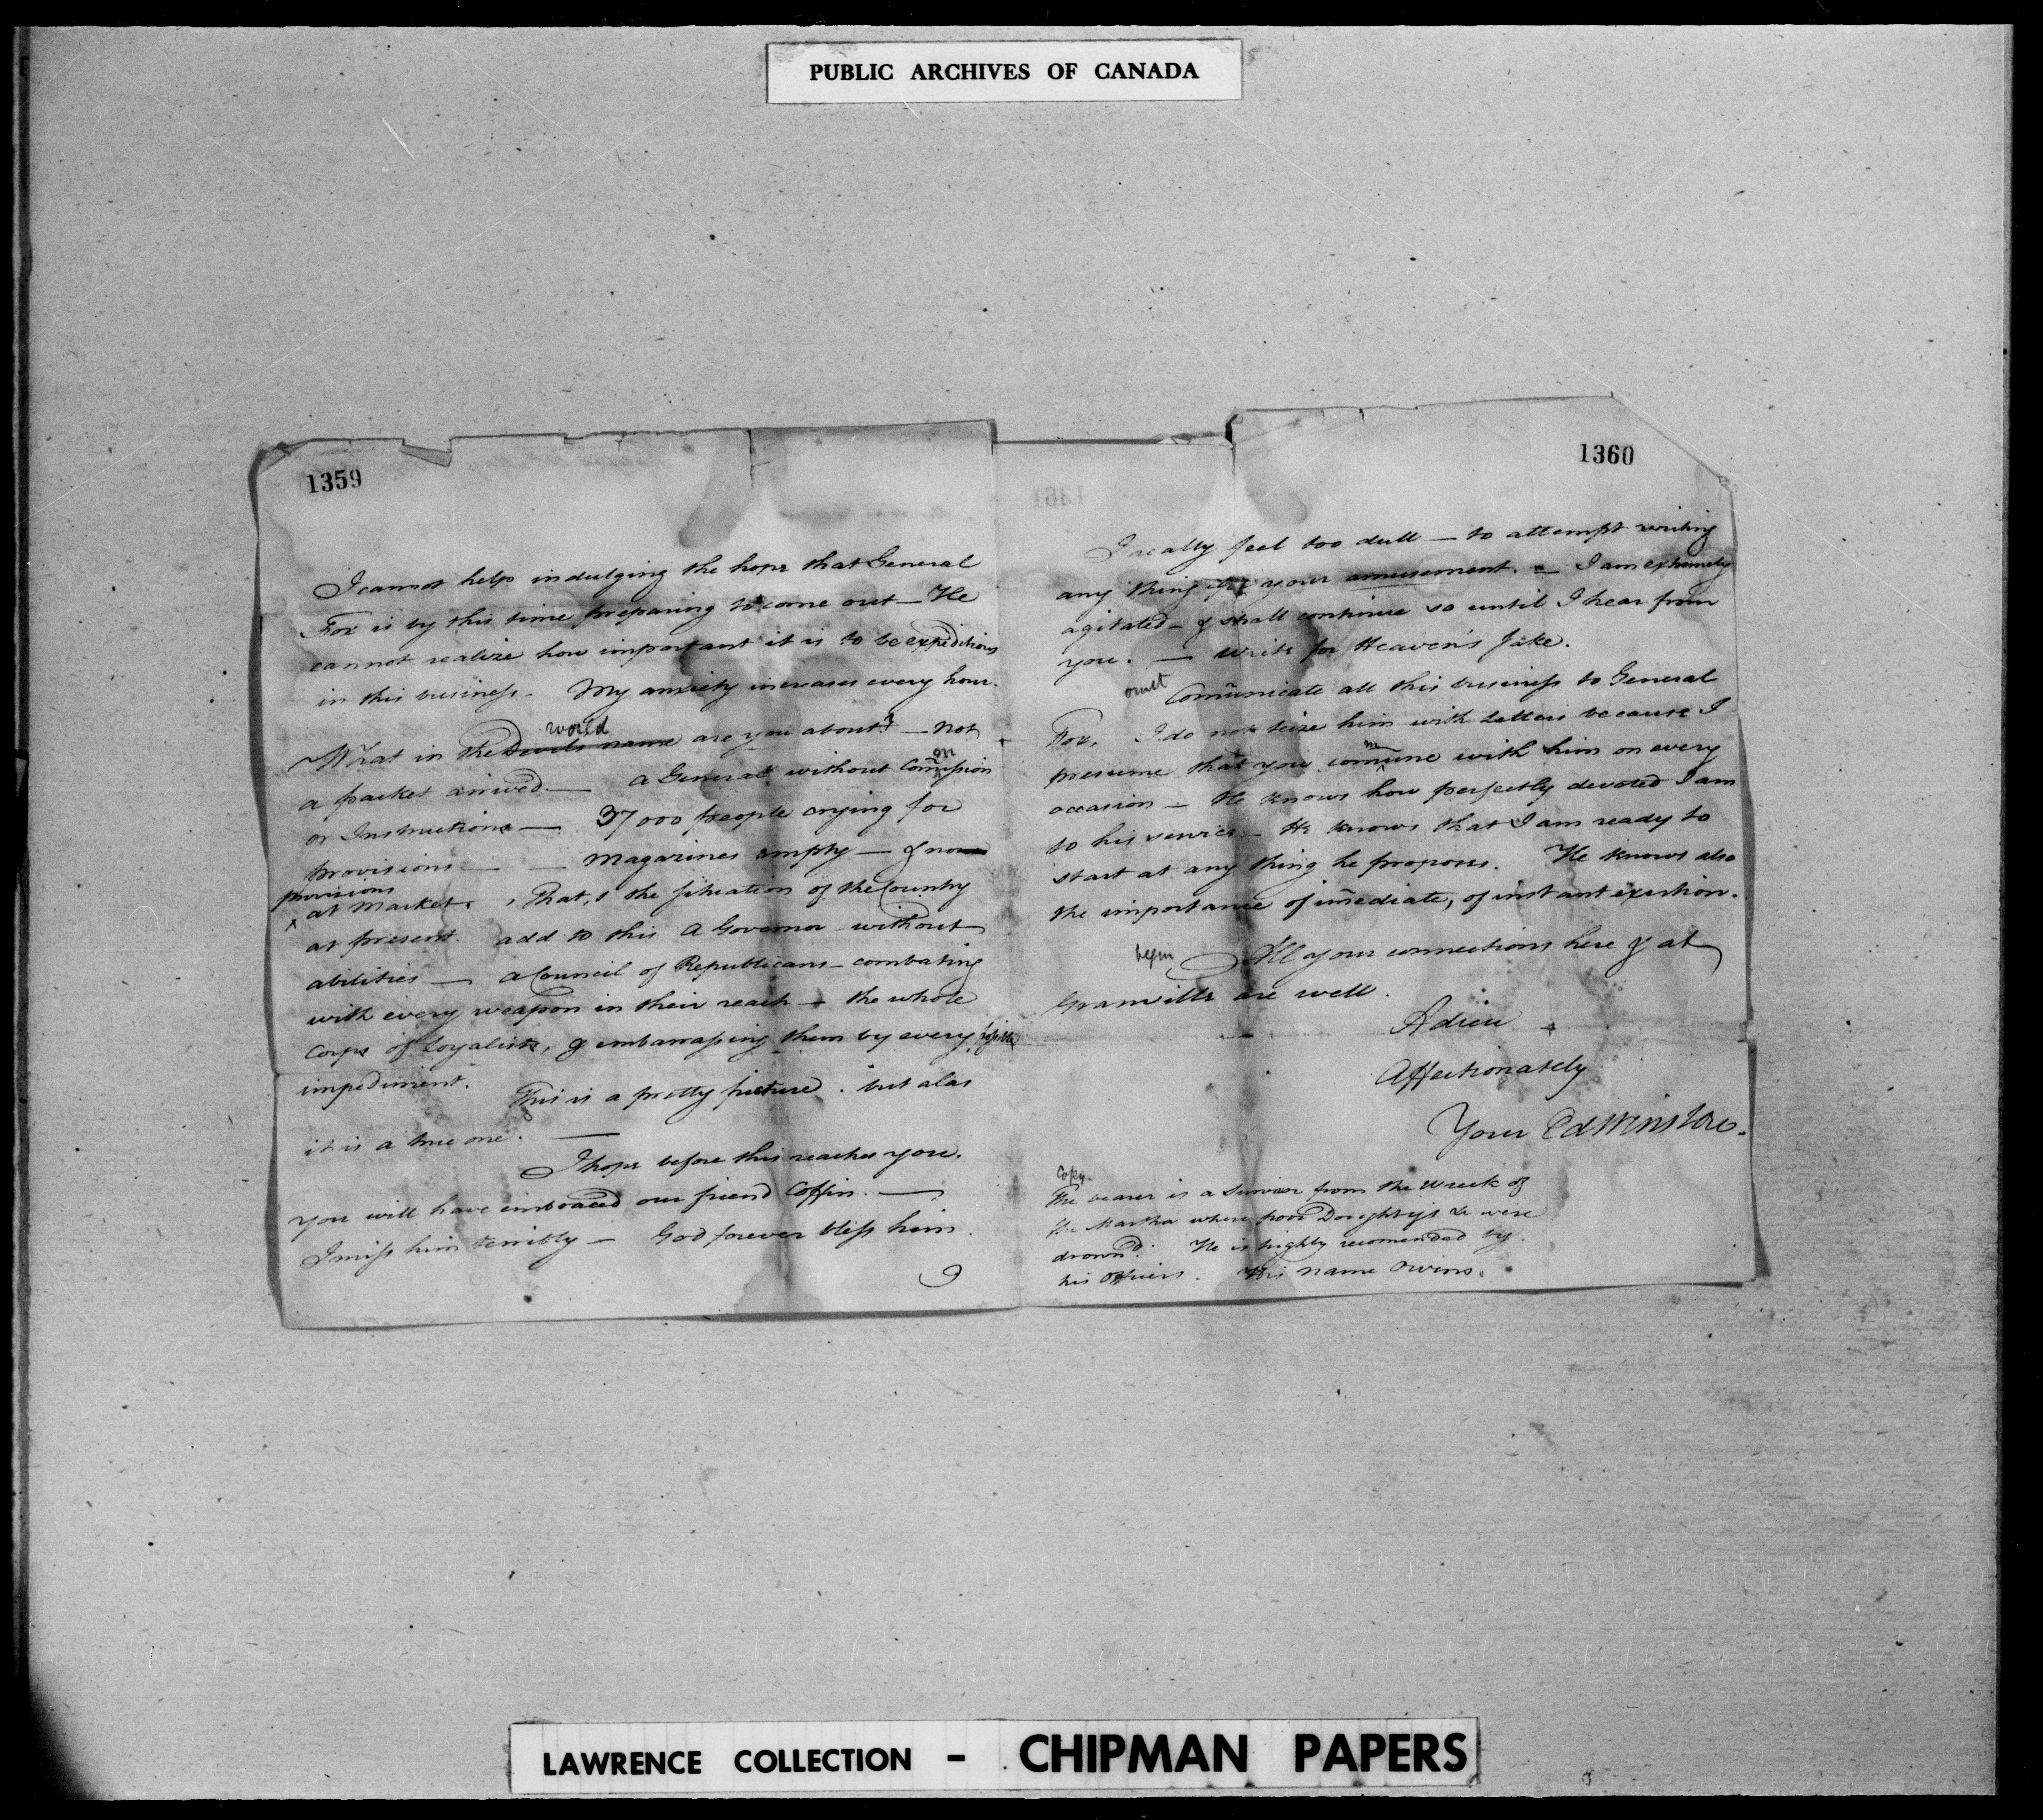 PUBLIC ARCHIVES OF CANADA
1359
I cannot help indulging the hope that General
Fox is by this time preparing to come out — He
cannot realize how important it is to be expeditious
in this business. My anxiety increases every hour.
world
What in the Devils name are you about? — not
a packet arrived. — a General without Com̃ission
or Instructions — 37000 people crying for
provisions — — Magazines empty — & no
provisions
at Market. That, s the situation of the Country
at present. add to this a Governor without
abilities — a Council of Republicans — combating
with every weapon in their reach — the whole
Corps of Loyalists, & embarrassing them by every possible
impediment. This is a pretty picture. but alas
it is a true one. —
I hope before this reaches you.
you will have embraced our friend Coffin. —
I miss him terribly — God forever bless him.
1360
1361
I really feel too dull — to attempt writing
any thing for your amusement. — I am extremely
agitated — & shall continue so until I hear from
you. — write for Heaven's sake.
omit Com̃unicate all this business to General
Fox, I do not teize him with letters because I
presume that you com̃une with him on every
occasion — He knows how perfectly devoted I am
to his service — He knows that I am ready to
start at any thing he proposes. He knows also
the importance of im̃ediate, of instant exertion.
begin All your connections here & at
Granville are well.
Adieu
Affectionately
Your Ed Winslow.
Copy.
The bearer is a survivor from the wreck of
the Martha where poor Doughty &c were
drown'd. He is highly recomended by
his Officers. His name Owens.
LAWRENCE COLLECTION – CHIPMAN PAPERS